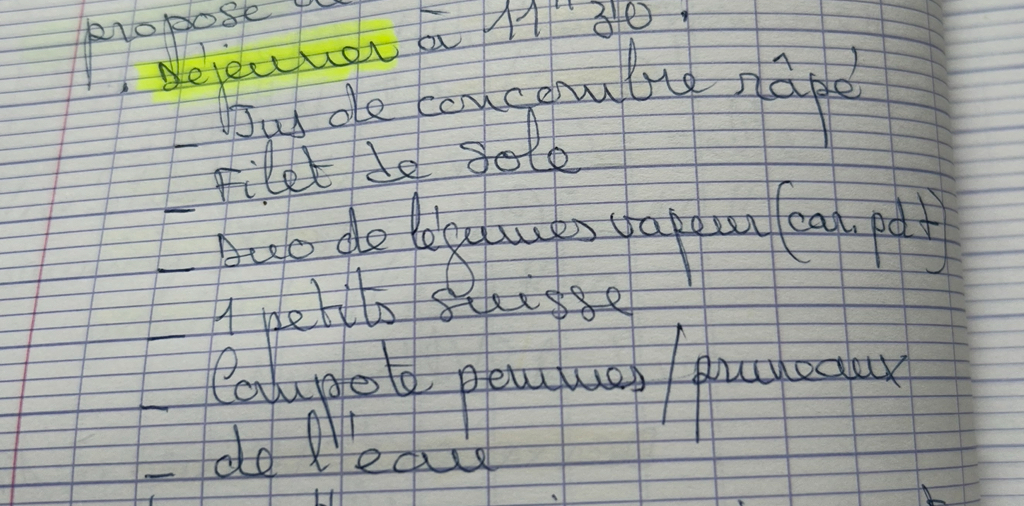 propose
. Déjeuner à 11h30.
- Jus de concombre râpé
- Filet de sole
- Duo de légumes vapeur (car, pdt)
- 1 petits suisse
- Compote pommes / pruneaux
- de l'eau